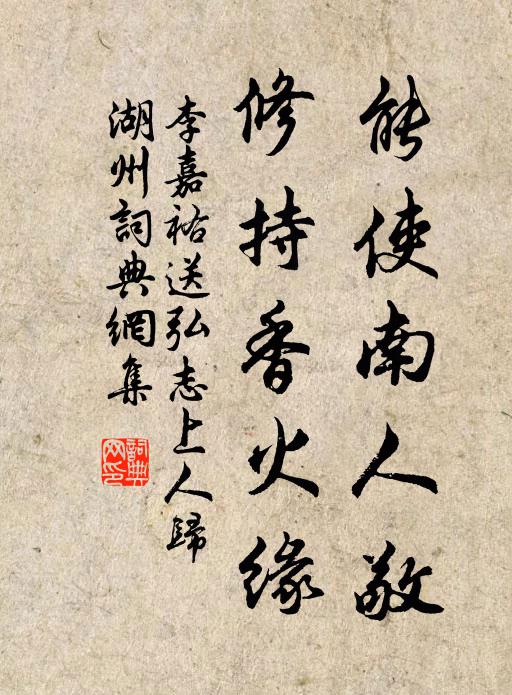 能使南人敬
修持香火緣
李嘉祐送弘志上人歸
湖州詞典網集
詞典网印